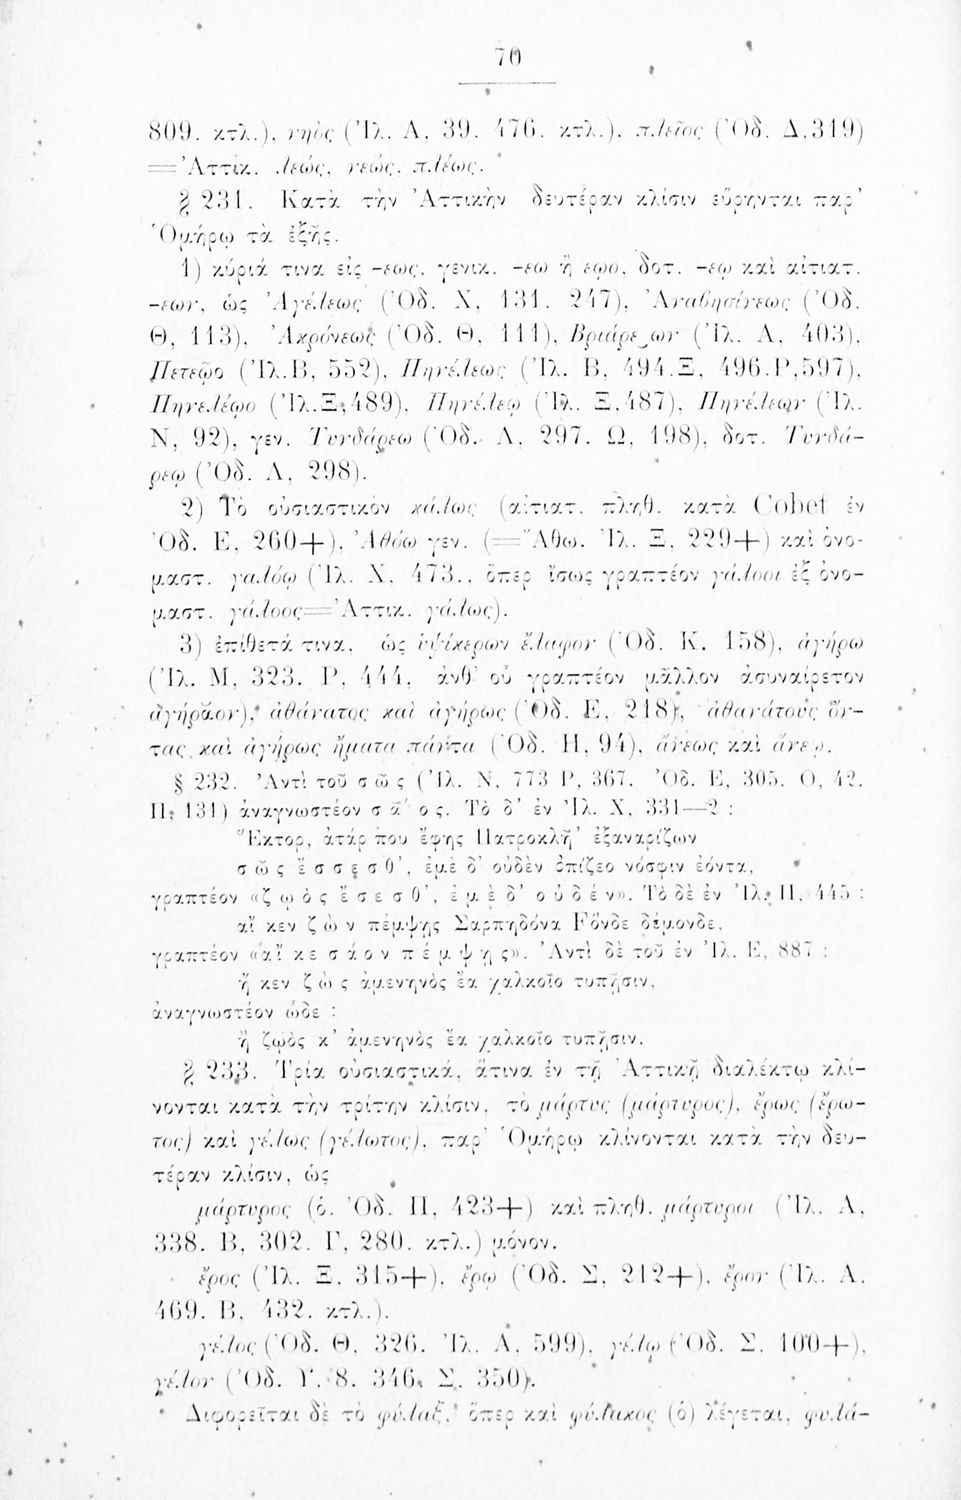 70
809. κτλ.), νηὸς (Ἰλ. Α, 39. 476. κτλ.), πλεῖος (Ὀδ. Δ, 319)
=Ἀττικ. λεώς, νεώς, πλέως.
§ 231. Κατὰ τὴν Ἀττικὴν δευτέραν κλίσιν εὕρηνται παρ’
Ὁμήρῳ τὰ ἑξῆς.
1) κύριά τινα εἰς -εως, γενικ. -εω ἢ εῳο, δοτ. -εῳ καὶ αἰτιατ.
-εων, ὡς Ἀγέλεως (Ὀδ. Χ, 131. 247), Ἀναβησίνεως (Ὀδ.
Θ, 113), Ἀκρόνεως (Ὀδ. Θ, 111), Βριάρεων (Ἰλ. Α, 403),
Πετεῷο (Ἰλ. Β, 552), Πηνέλεως (Ἰλ. Β, 494. Ξ, 496. Ρ, 597),
Πηνελέῳο (Ἰλ. Ξ, 489), Πηνέλεῳ (Ἰλ. Ξ, 487), Πηνέλεων (Ἰλ.
Ν, 92), γεν. Τυνδάρεω (Ὀδ. Λ, 297. Ω, 198), δοτ. Τυνδά-
ρεῳ (Ὀδ. Λ, 298).
2) Τὸ οὐσιαστικὸν κάλως (αἰτιατ. πληθ. κατὰ Cobet ἐν
Ὀδ. Ε, 260+), Ἀθόω γεν. (=Ἄθω. Ἰλ. Ξ, 229+) καὶ ὀνο-
μαστ. γαλόῳ (Ἰλ. Χ, 473., ὅπερ ἴσως γραπτέον γάλοοι ἐξ ὀνο-
μαστ. γάλοος=Ἀττικ. γάλως).
3) ἐπίθετά τινα, ὡς ὑψίκερων ἔλαφον (Ὀδ. Κ, 158), ἀγήρω
(Ἰλ. Μ, 323. Ρ, 444, ἀνθ’ οὗ γραπτέον μᾶλλον ἀσυναίρετον
ἀγήραον), ἀθάνατος καὶ ἀγήρως (Ὀδ. Ε, 218), ἀθανάτους ὄν-
τας καὶ ἀγήρως ἤματα πάντα (Ὀδ. Η, 94), ἄνεως καὶ ἄνεῳ.
§ 232. Ἀντὶ τοῦ σῶς (Ἰλ. Ν, 773 Ρ, 367. Ὀδ. Ε, 305. Ο, 42.
Π, 131) ἀναγνωστέον σάος. Τὸ δ’ ἐν Ἰλ. Χ, 331—2 :
Ἕκτορ, ἀτάρ που ἔφης Πατροκλῆ’ ἐξαναρίζων
σῶς ἔσσεσθ’, ἐμὲ δ’ οὐδὲν ὀπίζεο νόσφιν ἐόντα,
γραπτέον «ζωὸς ἔσεσθ’, ἐμὲ δ’ οὐδέν». Τὸ δὲ ἐν Ἰλ. Π, 445 :
αἴ κεν ζὼν πέμψῃς Σαρπηδόνα Fόνδε δόμονδε,
γραπτέον «αἴ κε σάον πέμψῃς». Ἀντὶ δὲ τοῦ ἐν Ἰλ. Ε, 887 :
ἤ κεν ζὼς ἀμενηνὸς ἔα χαλκοῖο τυπῇσιν,
ἀναγνωστέον ὧδε :
ἢ ζῳὸς κ’ ἀμενηνὸς ἔα χαλκοῖο τυπῇσιν.
§ 233. Τρία οὐσιαστικά, ἅτινα ἐν τῇ Ἀττικῇ διαλέκτῳ κλί-
νονται κατὰ τὴν τρίτην κλίσιν, τὸ μάρτυς (μάρτυρος), ἔρως (ἔρω-
τος) καὶ γέλως (γέλωτος), παρ’ Ὁμήρῳ κλίνονται κατὰ τὴν δευ-
τέραν κλίσιν, ὡς
μάρτυρος (ὁ. Ὀδ. Π, 423+) καὶ πληθ. μάρτυροι (Ἰλ. Α,
338. Β, 302. Γ, 280. κτλ.) μόνον.
ἔρος (Ἰλ. Ξ, 315+), ἔρῳ (Ὀδ. Σ, 212+), ἔρον (Ἰλ. Α,
469. Β, 432. κτλ.).
γέλος (Ὀδ. Θ, 326. Ἰλ. Α, 599), γέλῳ (Ὀδ. Σ, 100+),
γέλον (Ὀδ. Υ, 8. 346. Σ, 350).
Διφορεῖται δὲ τὸ φύλαξ, ὅπερ καὶ φύλακος (ὁ) λέγεται, φυλά-